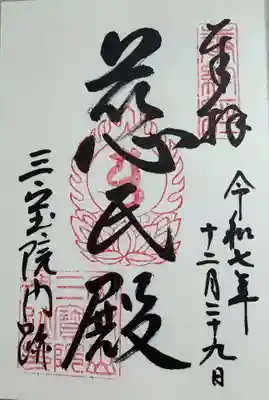 奉拝
令和七年
十二月二十九日
慈氏殿
三宝院門跡